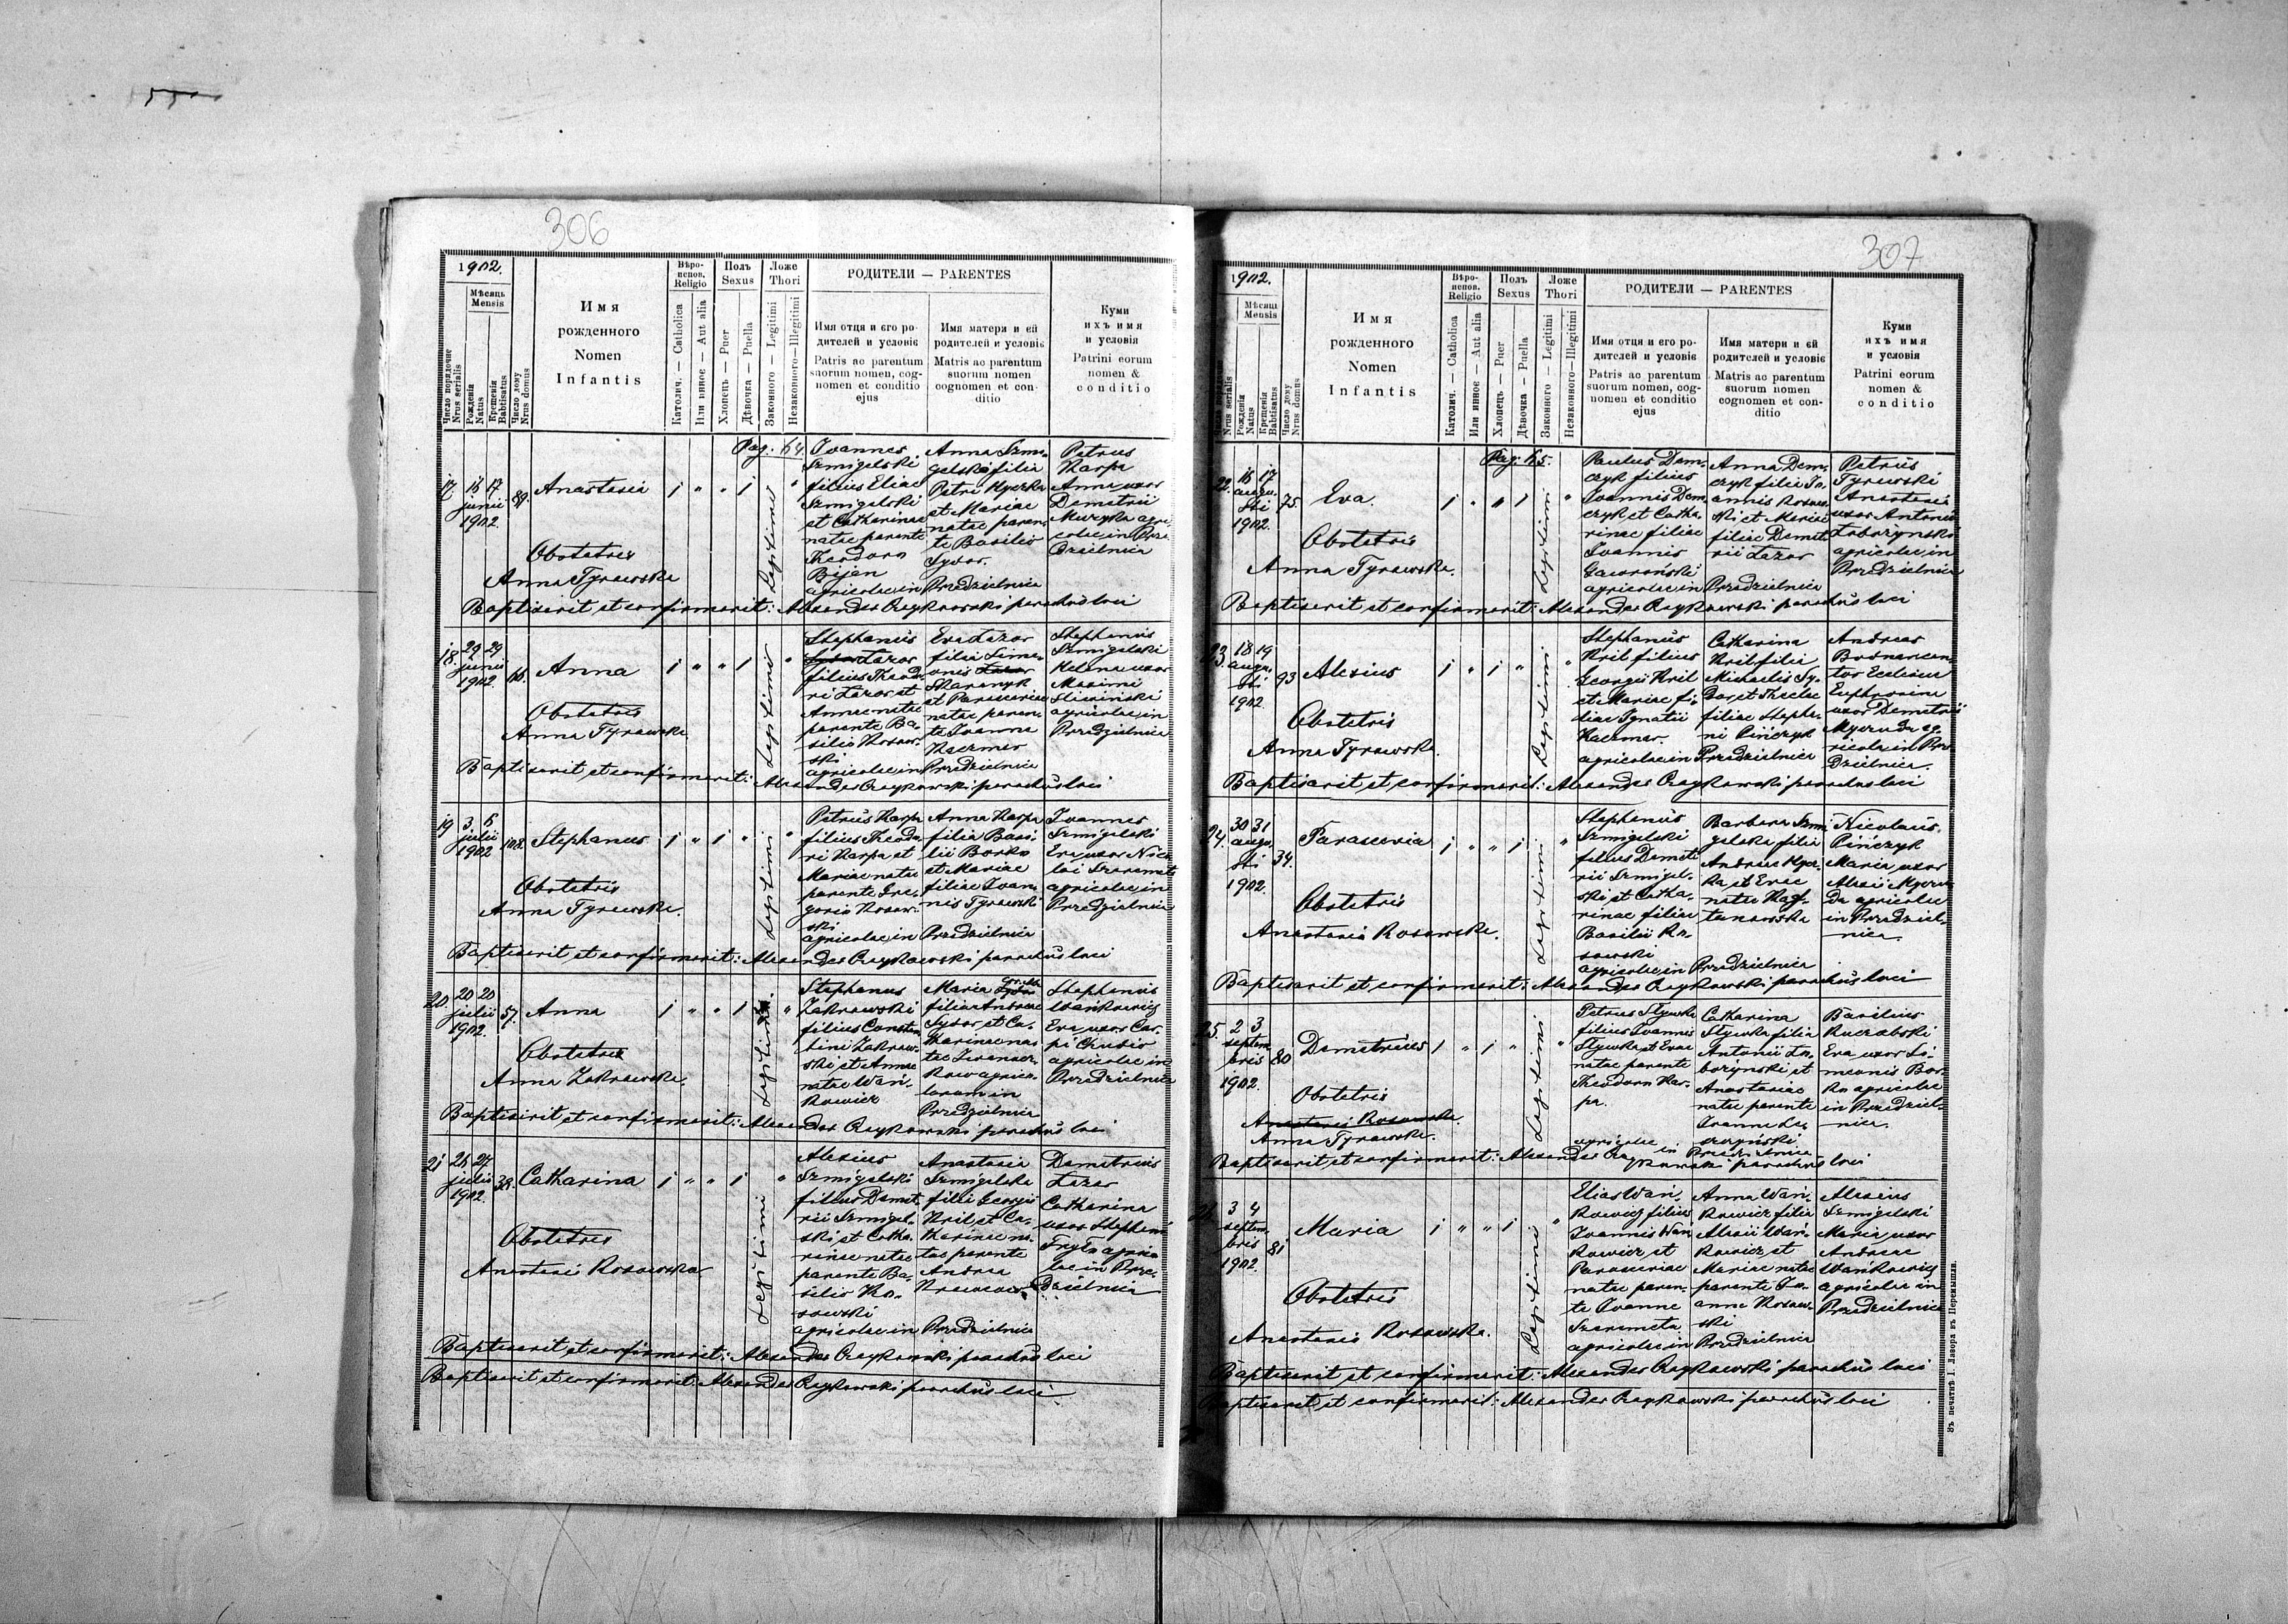 306
1902.
Мѣсяць
Mensis
Число порядочне
Nrus serialis
Рожденія
Natus
Крещенія
Babtisatus
Число дому
Nrus domus
Имя
рожденного
Nomen
Infantis
Вѣро-
испов.
Religio
Католич. — Catholica
Или инное — Aut alia
Полъ
Sexus
Хлопець — Puer
Дѣвочка — Puella
Ложе
Thori
Законного — Legitimi
Незаконного—Illegitimi
РОДИТЕЛИ — PARENTES
Имя отця и єго ро-
дителей и условіє
Patris ac parentum
suorum nomen, cog-
nomen et conditio
ejus
Имя матери и єй
родителей и условіє
Matris ac parentum
suorum nomen
cognomen et con-
ditio
Куми
ихъ имя
и условія
Patrini eorum
nomen &
conditio
Pag. 64
17
16 17
junii
1902.
89.
Anastasia
Obstetrix
Anna Tyrawska
Legitimi
Joannes
Szmigelski
filius Eliae
Szmigelski
et Catharinae
natae parente
Theodoro
Bijan
agricolae in
Anna Szmi-
gelski filia
Petri Myczka
et Mariae
natae paren-
te Basilio
Sydor.
Przedzielnica
Petrus
Karpa
Anna uxor
Demetrii
Muzyka agri-
colae in Prze-
dzielnica
Baptisavit et confirmavit: Alexander Czajkowski parochus loci
18.
29 29
junii
1902.
66.
Anna
Obstetrix
Anna Tyrawska
Legitimi
Stephanus
Lazor
filius Theodo-
ri Lazor et
Annae natae
parente Ba-
silio Kosow-
ski
agricolae in
Eva Lazor
filia Sime-
onis
et Parasceviae
natae paren-
te Joanne
Kaczmar
Przedzielnica
Stephanus
Szmigelski
Helena uxor
Maximi
Sliwiński
agricolae in
Przedzielnica
Baptisavit et confirmavit: Alexander Czajkowski parochus loci
19
3 6
julii
1902
108.
Stephanus
Obstetrix
Anna Tyrawska.
Legitimi
Petrus Karpa
filius Theodo-
ri Karpa et
Mariae natae
parente Gre-
gorio Kosow-
ski
agricolae in
Anna Karpa
filia Basi-
lii Borko
et Mariae
filiae Joan-
nis Tyrawski
Przedzielnica
Joannes
Szmigelski
Eva uxor Nico-
lai Szeremeta
agricolae in
Przedzielnica
Baptisavit et confirmavit: Alexander Czajkowski parochus loci
20.
20 20
julii
1902.
57.
Anna
Obstetrix
Anna Zakrawska.
Legitimi
Stephanus
Zakrawski
filius Constan-
tini Zakraw-
ski et Annae
natae Wań-
kowicz
Maria
filia Andreae
Sydor et Ca-
tharinae na-
tae
agrico-
larum in
Przedzielnica
Stephanus
Wańkowicz
Eva uxor Car-
pi Chudio
agricolae in
Przedzielnica
Baptisavit et confirmavit: Alexander Czajkowski parochus loci
21
26 27
julii
1902.
38.
Catharina
Obstetrix
Anastasia Kosowska
Legitimi
Alexius
Szmigelski
filius Demet-
rii Szmigel-
ski et Catha-
rinae natae
parente Ba-
silio Ko-
sowski
agricolae in
Anastasia
Szmigelska
filia Georgii
Kril et Ca-
tharinae na-
tae parente
Andrea
Przedzielnica
Demetrius
Lazor
Catharina
uxor Stephani
Fryta agrico-
lae in Prze-
dzielnica
Baptisavit et confirmavit: Alexander Czajkowski parochus loci
Baptisavit et confirmavit: Alexander Czajkowski parochus loci
307
1902.
Мѣсяць
Mensis
Nrus serialis
Рожденія
Natus
Крещенія
Babtisatus
Число дому
Nrus domus
Имя
рожденного
Nomen
Infantis
Вѣро-
испов.
Religio
Католич. — Catholica
Или инное — Aut alia
Полъ
Sexus
Хлопець — Puer
Дѣвочка — Puella
Ложе
Thori
Законного — Legitimi
Незаконного—Illegitimi
РОДИТЕЛИ — PARENTES
Имя отця и єго ро-
дителей и условіє
Patris ac parentum
suorum nomen, cog-
nomen et conditio
ejus
Имя матери и єй
родителей и условіє
Matris ac parentum
suorum nomen
cognomen et con-
ditio
Куми
ихъ имя
и условія
Patrini eorum
nomen &
conditio
Pag. 65.
22.
16 17
augu-
sti
1902.
75.
Eva.
Obstetrix
Anna Tyrawska.
Legitimi
Paulus Dem-
czyk filius
Joannis Dem-
czyk et Catha-
rinae filiae
Joannis
Gaworński
agricolae in
Anna Dem-
czyk filia Jo-
annis Kosow-
ski et Mariae
filiae Demet-
rii Lazor
Przedzielnica
Petrus
Tyrawski
Anastasia
uxor Antonii
Łoborzyński
agricolae in
Przedzielnica
Baptisavit et confirmavit: Alexander Czajkowski parochus loci
23.
18 19
augu-
sti
1902
93
Alexius
Obstetrix
Anna Tyrawska.
Legitimi
Stephanus
Kril filius
Georgii Kril
et Mariae fi-
liae Ignatii
Kaczmar.
agricolae in
Catharina
Kril filia
Michaelis Sy-
dor et Theclae
filiae Stepha-
ni Pińczyk
Przedzielnica
Andreas
Bodnar can-
tor Ecclesiae
Euphrosina
uxor Demetrii
Myczuda ag-
ricolae in Prze-
dzielnica.
Baptisavit et confirmavit: Alexander Czajkowski parochus loci
24.
30 31
augu-
sti
1902.
34.
Parascevia
Obstetrix
Anastasia Kosowska.
Legitimi
Stephanus
Szmigelski
filius Demet-
rii Szmigel-
ski et Catha-
rinae filiae
Basilii Ko-
sowski
agricolae in
Barbara Szmi-
gelska filia
Andreae Mycz-
ka et Evae
natae Kaf-
tanowska
Przedzielnica
Nicolaus
Pińczyk
Maria uxor
Alexii Myczu-
da agricolae
in Przedziel-
nica.
Baptisavit et confirmavit: Alexander Czajkowski parochus loci
25.
2 3
septem-
bris
1902.
80
Demetrius
Obstetrix
Anastasia Kosowska.
Anna Tyrawska.
Legitimi
Petrus Stywka
filius Joannis
Stywka et Evae
natae parente
Theodoro Kar-
pa.
agricolae in
Catharina
Stywka filia
Antonii Ło-
borzyński et
Anastasiae
natae parente
Joanne
Przedzielnica
Basilius
Kurabski
Eva uxor Si-
meonis Bor-
ko agricolae
in Przedziel-
nica.
Baptisavit et confirmavit: Alexander Czajkowski parochus loci
3 4
septem-
bris
1902.
81
Maria
Obstetrix
Anastasia Kosowska.
Legitimi
Elias Wań-
kowicz filius
Joannis Wań-
kowicz et
Parasceviae
natae paren-
te Joanne
Szeremeta
agricolae in
Anna Wań-
kowicz filia
Alexii Wań-
kowicz et
Mariae natae
parente Jo-
anne Kosow-
ski
Przedzielnica
Alexius
Szmigelski
Maria uxor
Andreae
Wańkowicz
agricolae in
Przedzielnica
Baptisavit et confirmavit: Alexander Czajkowski parochus loci
Baptisavit et confirmavit: Alexander Czajkowski parochus loci
Въ печатнѣ І. Лазора въ Перемышли.